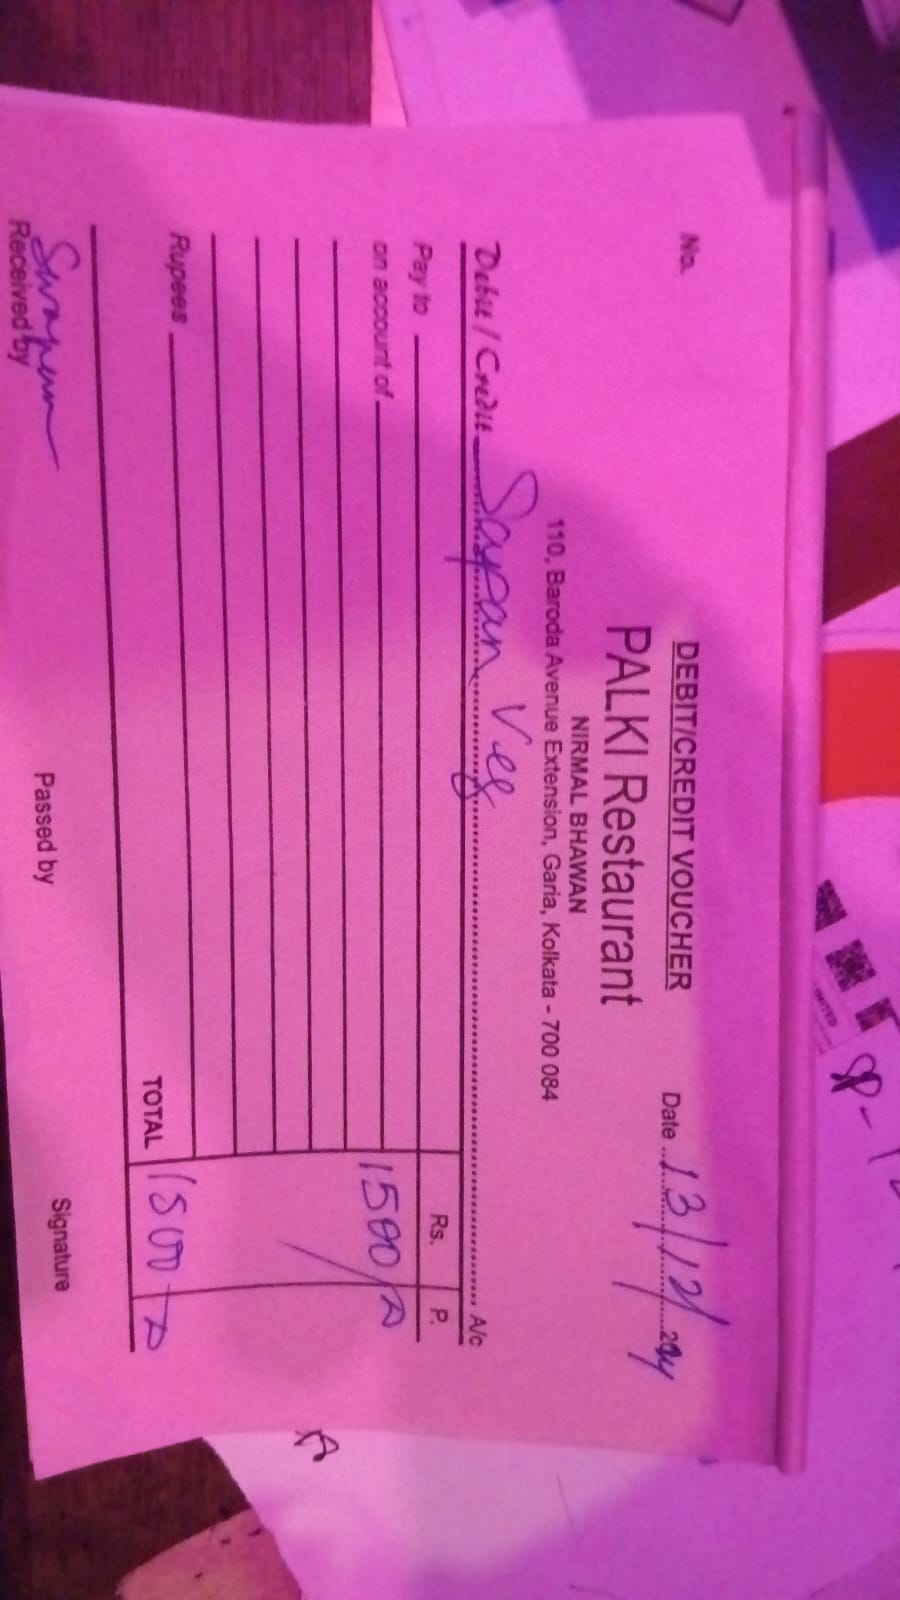 DEBIT/CREDIT VOUCHER
No.
Date 13/12/2024
PALKI Restaurant
NIRMAL BHAWAN
110, Baroda Avenue Extension, Garia, Kolkata - 700 084
Debit / Credit Sapan Veg A/c
Pay to Rs. P.
on account of 1500/-
Rupees
TOTAL 1500
Swapan
Received by Passed by Signature